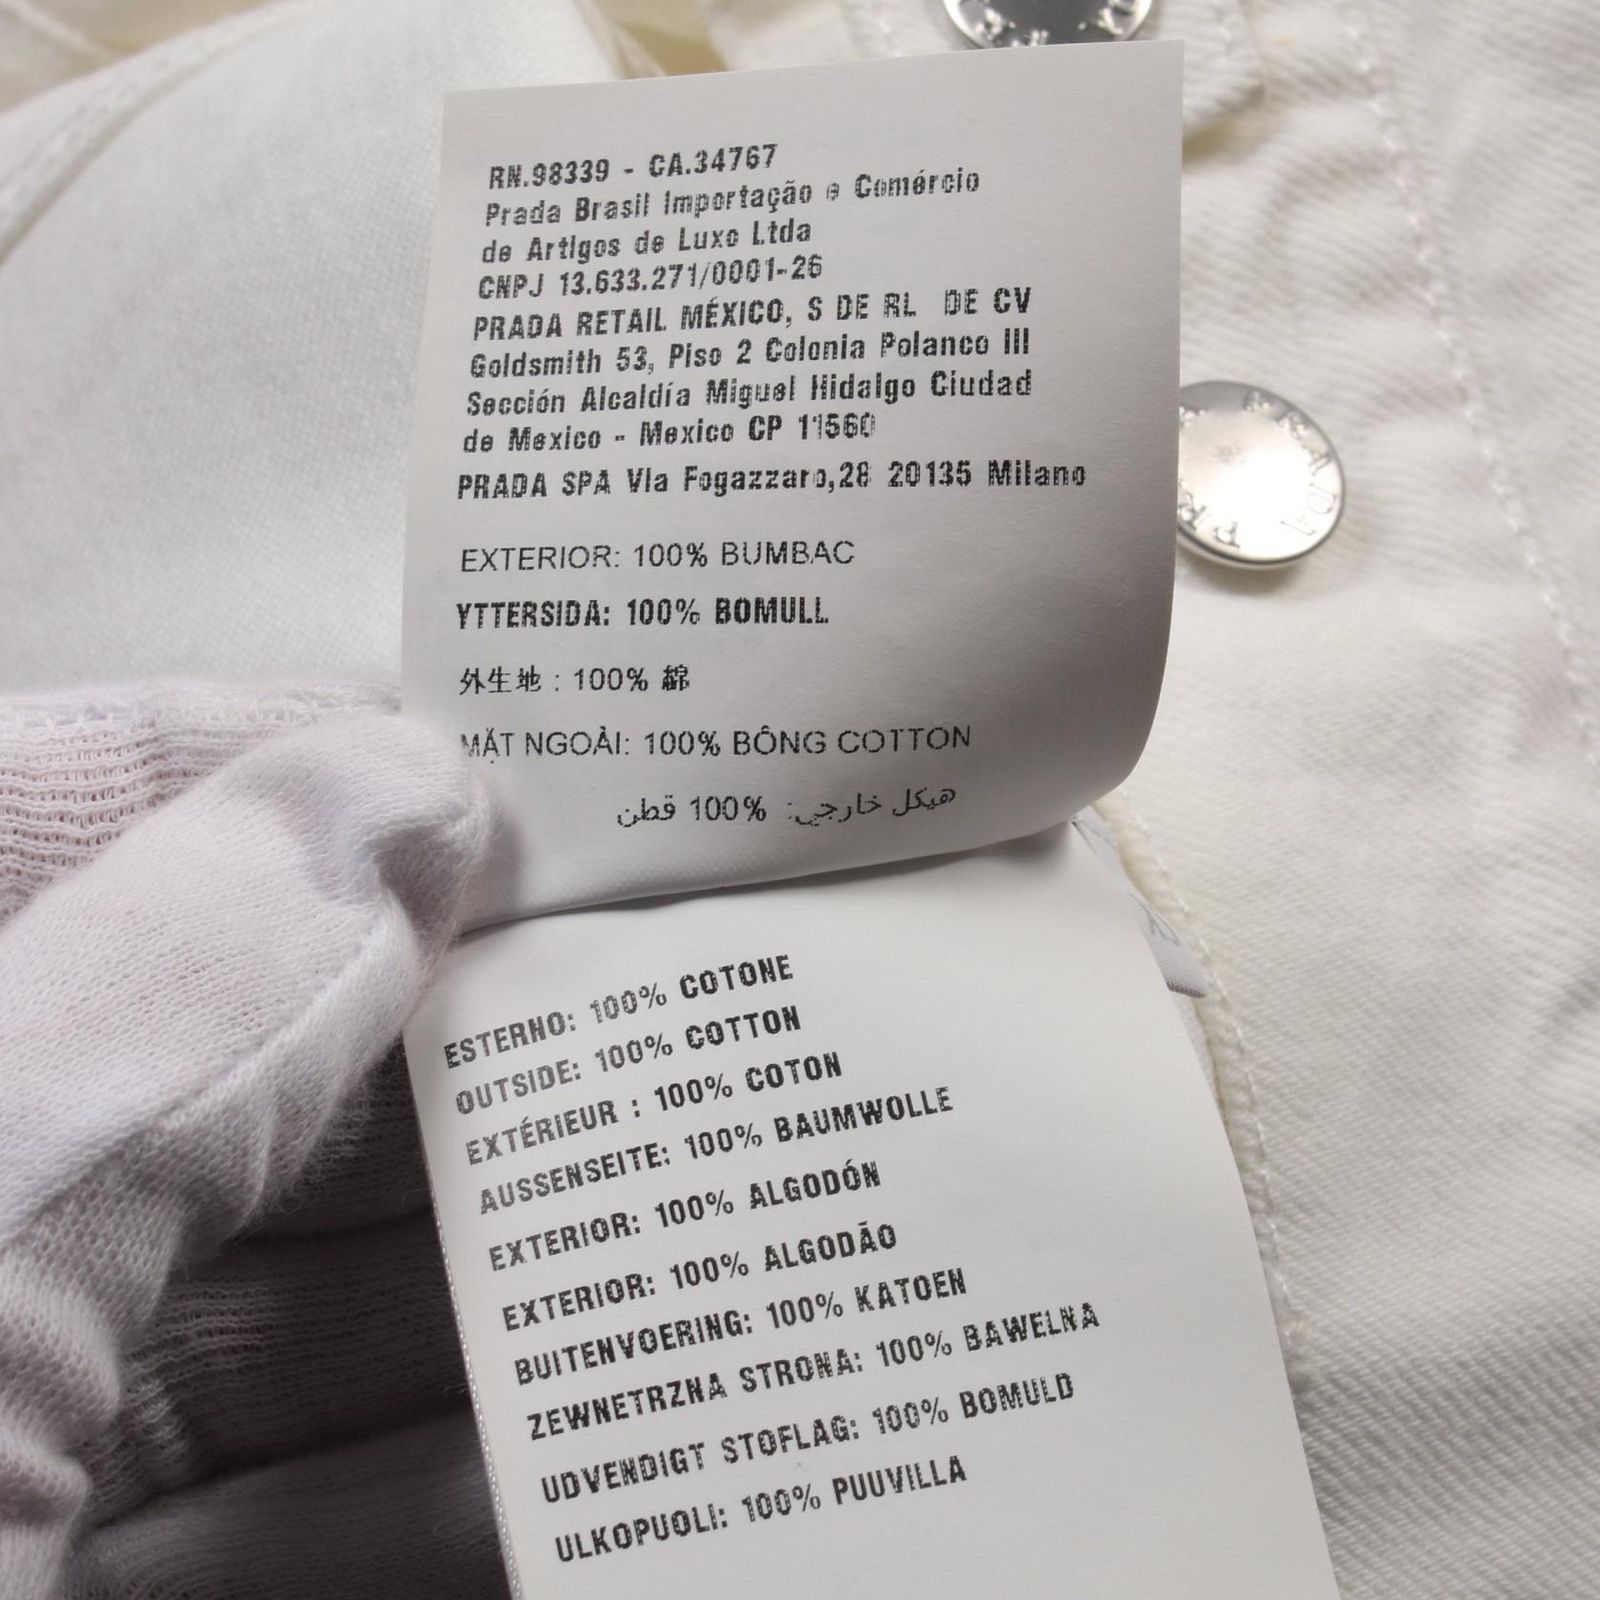 RN.98339 - CA.34767
Prada Brasil Importação e Comércio
de Artigos de Luxo Ltda
CNPJ 13.633.271/0001-26
PRADA RETAIL MÉXICO, S DE RL DE CV
Goldsmith 53, Piso 2 Colonia Polanco III
Sección Alcaldía Miguel Hidalgo Ciudad
de Mexico - Mexico CP 11560
PRADA SPA Via Fogazzaro,28 20135 Milano
EXTERIOR: 100% BUMBAC
YTTERSIDA: 100% BOMULL
外生地 : 100% 綿
MẶT NGOÀI: 100% BÔNG COTTON
هيكل خارجي: 100% قطن
ESTERNO: 100% COTONE
OUTSIDE: 100% COTTON
EXTÉRIEUR : 100% COTON
AUSSENSEITE: 100% BAUMWOLLE
EXTERIOR: 100% ALGODÓN
EXTERIOR: 100% ALGODÃO
BUITENVOERING: 100% KATOEN
ZEWNETRZNA STRONA: 100% BAWELNA
UDVENDIGT STOFLAG: 100% BOMULD
ULKOPUOLI: 100% PUUVILLA
PRADA